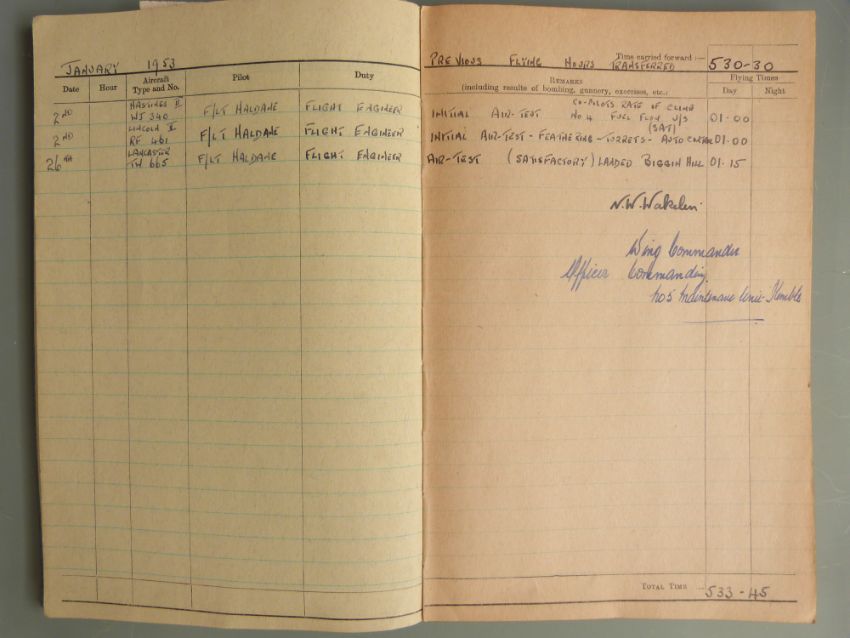 JANUARY 1953
Date Hour Aircraft Type and No. Pilot Duty
2ND HASTINGS II WJ 340 F/LT HALDANE FLIGHT ENGINEER
2ND LINCOLN II RF 461 F/LT HALDANE FLIGHT ENGINEER
26TH LANCASTER TW 665 F/LT HALDANE FLIGHT ENGINEER
Time carried forward :—
PREVIOUS FLYING HOURS TRANSFERRED 530-30
REMARKS
(including results of bombing, gunnery, exercises, etc.)
Flying Times
Day Night
CO-PILOTS RATE OF CLIMB
INITIAL AIR-TEST NO. 4 FUEL FLOW U/S 01-00
(SAT)
INITIAL AIR-TEST - FEATHERING - TURRETS - AUTO CONTROL 01-00
AIR-TEST (SATISFACTORY) LANDED BIGGIN HILL 01.15
N.W. Wakelin.
Wing Commander
Officer Commanding.
No 5 Maintenance Unit Kemble
TOTAL TIME 533-45